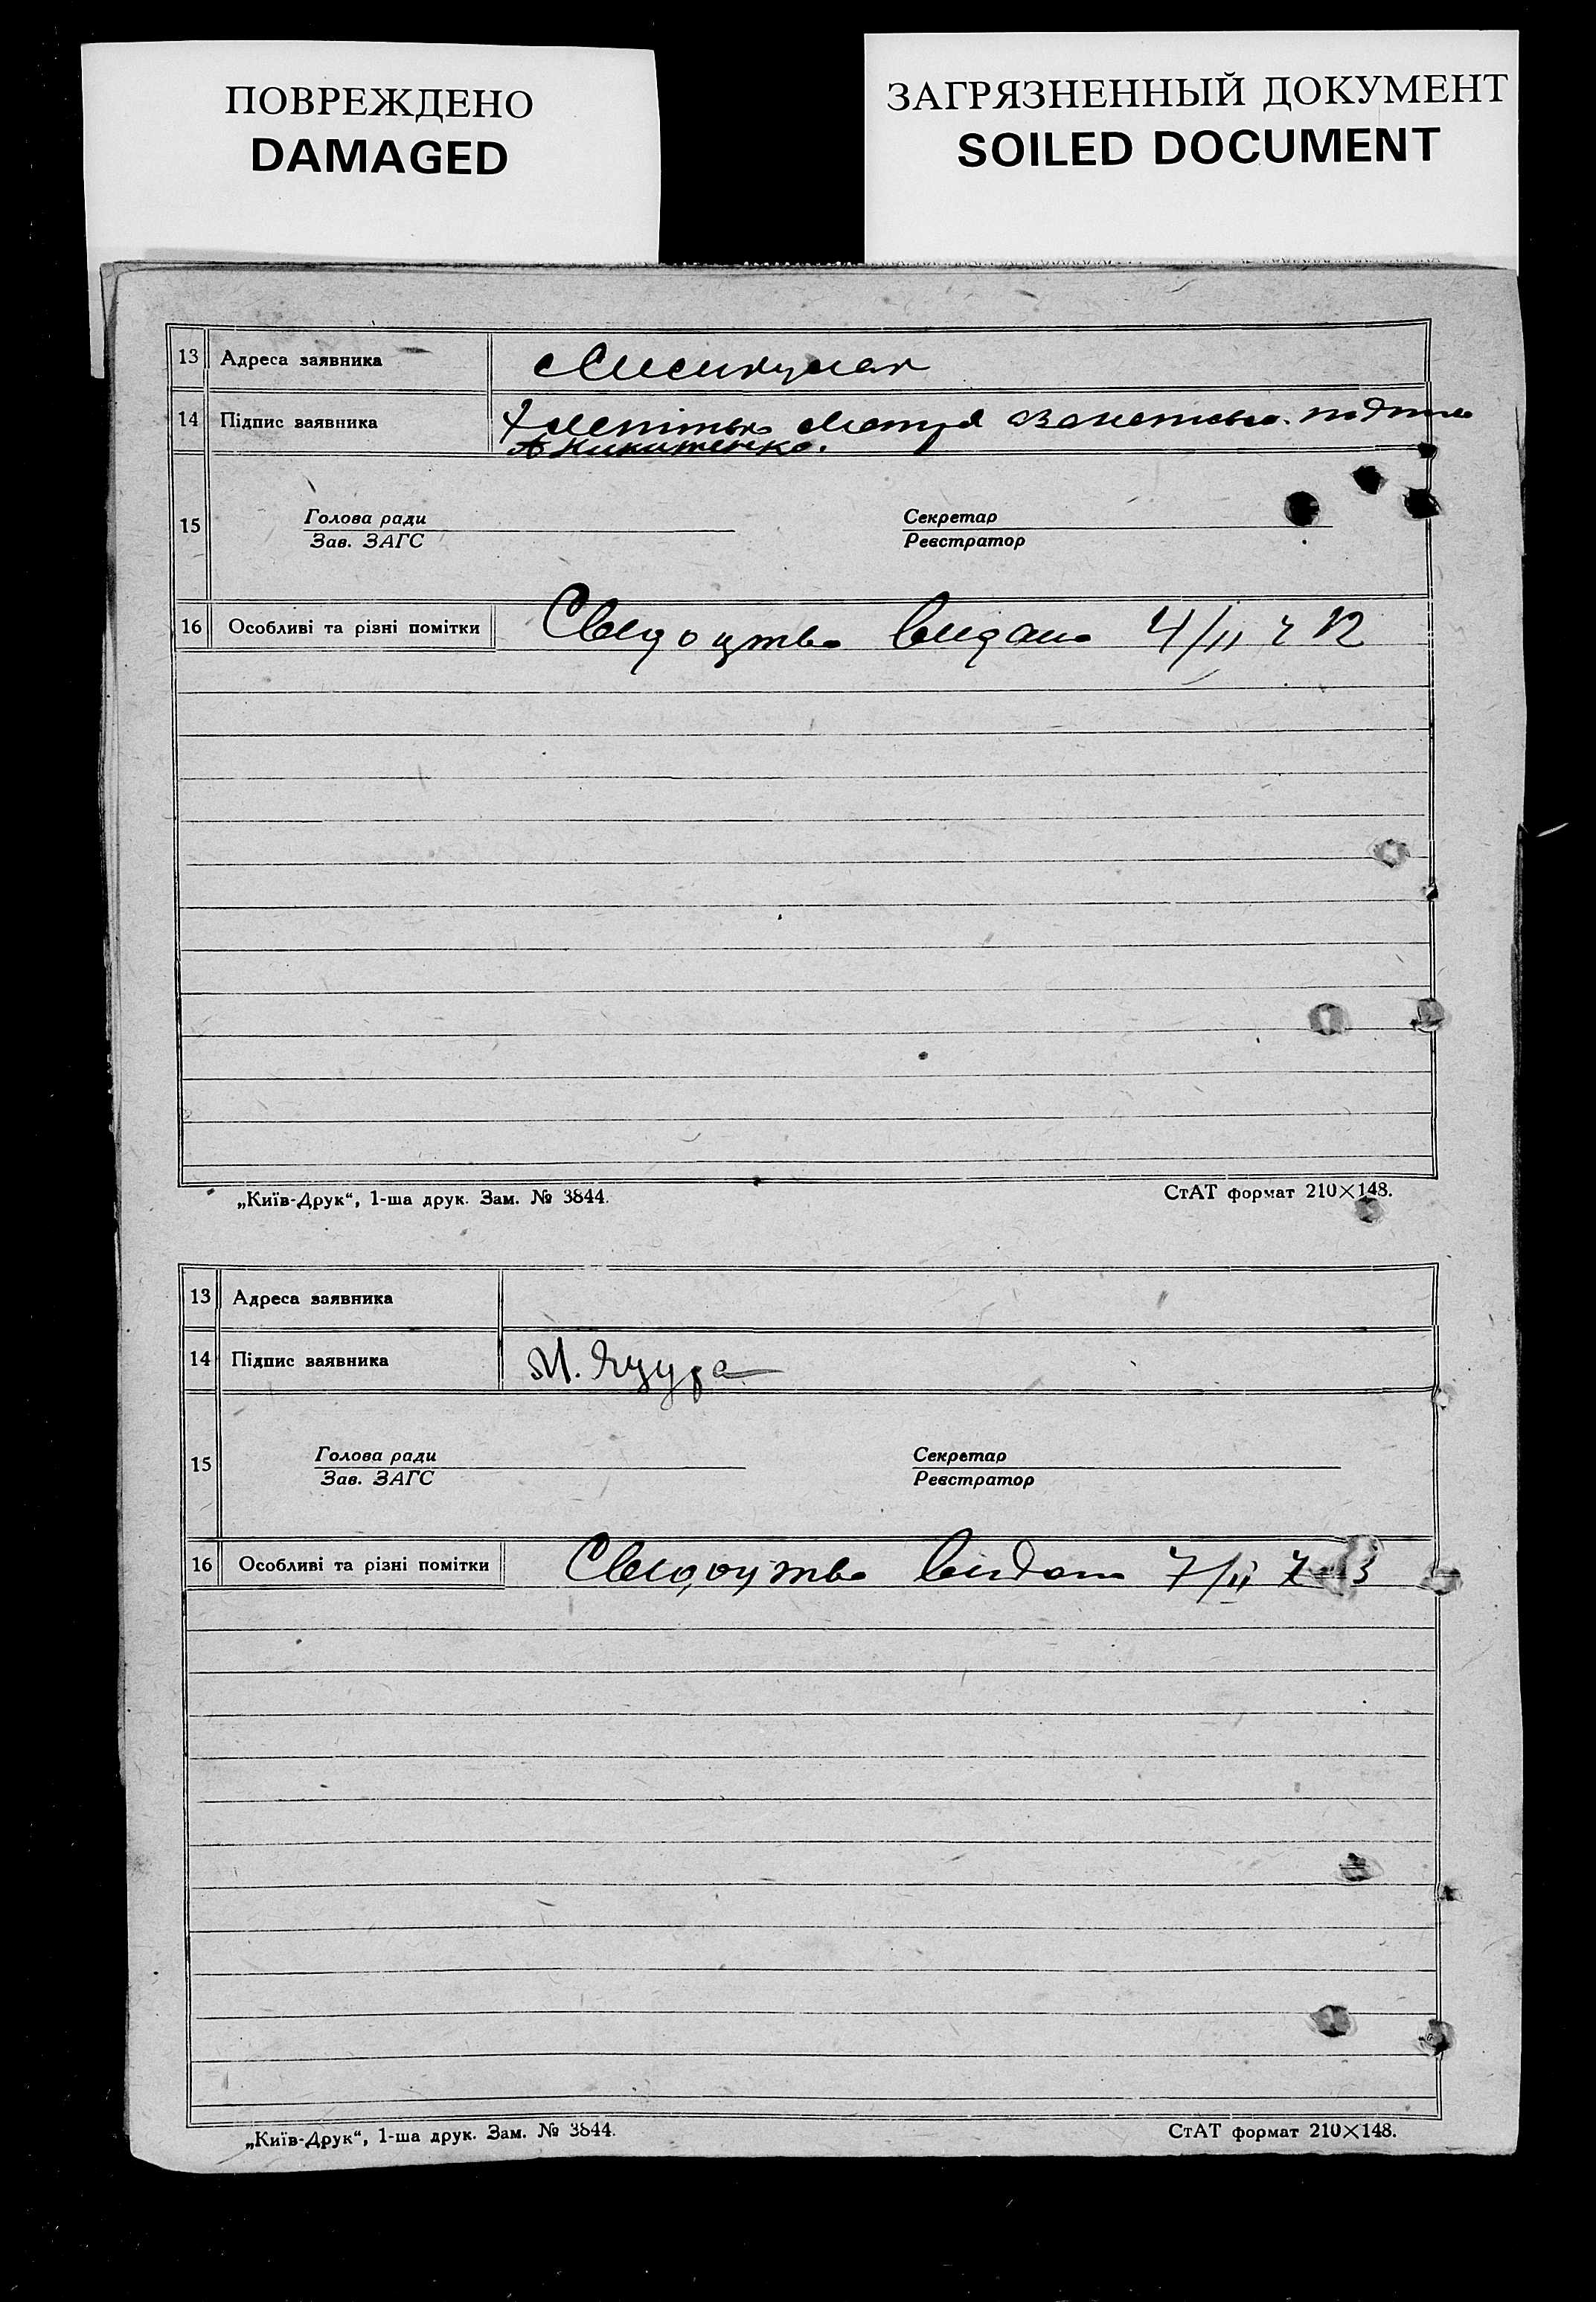 ПОВРЕЖДЕНО
DAMAGED
ЗАГРЯЗНЕННЫЙ ДОКУМЕНТ
SOILED DOCUMENT
13 Адреса заявника
14 Підпис заявника
А Никитенко.
15 Голова ради Секретар
Зав. ЗАГС Реєстратор
16 Особливі та різні помітки Свидоцтво видано 4/II ч 12
„Київ-Друк“, 1-ша друк. Зам. № 3844. СтАТ формат 210×148.
13 Адреса заявника
14 Підпис заявника М. Яцура
15 Голова ради Секретар
Зав. ЗАГС Реєстратор
16 Особливі та різні помітки Свидоцтво видано 7/II
„Київ-Друк“, 1-ша друк. Зам. № 3844. СтАТ формат 210×148.